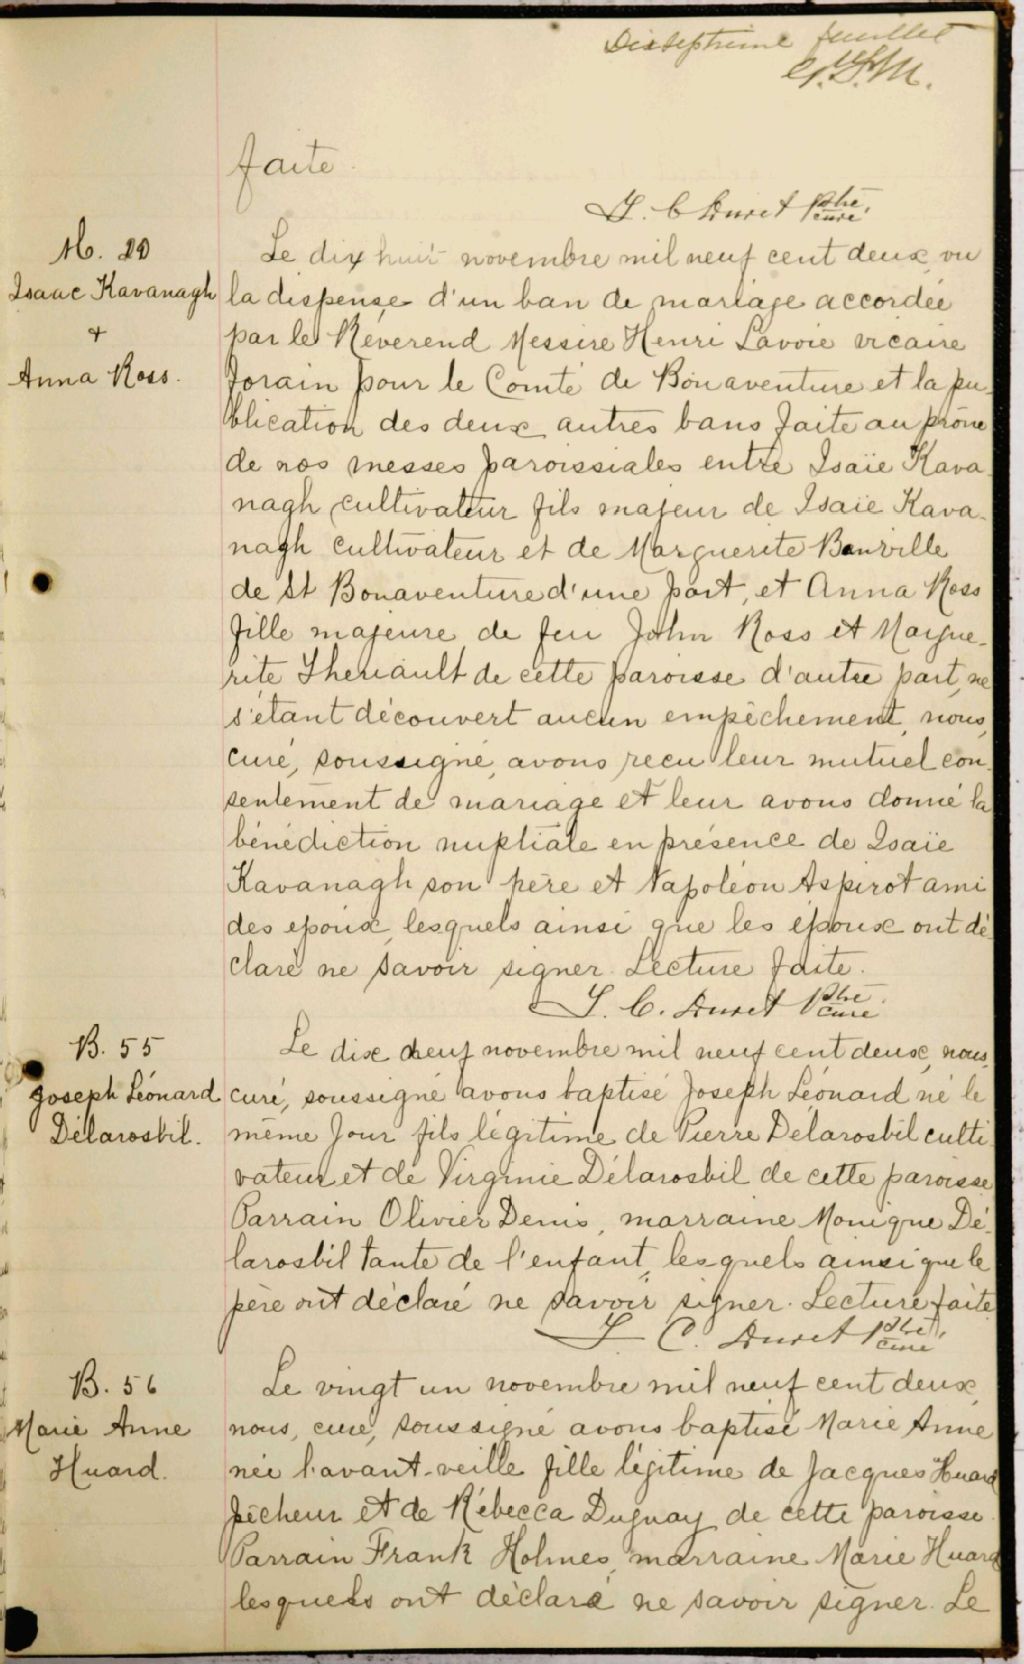 Dixseptième feuillet
faite.
Le dix huit novembre mil neuf cent deux, vu
M. 20
Isaac Kavanagh
+
Anna Ross.
la dispense d'un ban de mariage accordée
par le Révérend Messire Henri Lavoie vicaire
forain pour le Comté de Bonaventure et la pu-
blication des deux autres bans faite au prône
de nos messes paroissiales entre Isaïe Kava-
nagh cultivateur fils majeur de Isaïe Kava-
nagh cultivateur et de Marguerite Banville
de St Bonaventure d'une part, et Anna Ross
fille majeure de feu John Ross et Margue-
rite Theriault de cette paroisse d'autre part, ne
s'étant découvert aucun empêchement, nous,
curé, soussigné, avons recu leur mutuel con-
sentement de mariage et leur avons donné la
bénédiction nuptiale en présence de Isaïe
Kavanagh son père et Napoléon Aspirot ami
des epoux, lesquels ainsi que les époux ont dé-
claré ne savoir signer. Lecture faite.
Ptre
curé
B. 55
Joseph Léonard
Délarosbil.
Le dix neuf novembre mil neuf cent deux, nous,
curé, soussigné avons baptisé Joseph Léonard né le
même jour fils légitime de Pierre Délarosbil culti-
vateur et de Virginie Délarosbil de cette paroisse
Parrain Olivier Denis, marraine Monique Dé-
larosbil tante de l'enfant, lesquels ainsi que le
père ont déclaré ne savoir signer. Lecture faite
Ptre,
curé
B. 56
Marie Anne
Huard.
Le vingt un novembre mil neuf cent deux,
nous, curé, soussigné avons baptisé Marie Anne
née l'avant-veille fille légitime de Jacques Huard
pêcheur et de Rébecca Duguay de cette paroisse.
Parrain Frank Holmes, marraine Marie Huard
lesquels ont déclaré ne savoir signer. Le